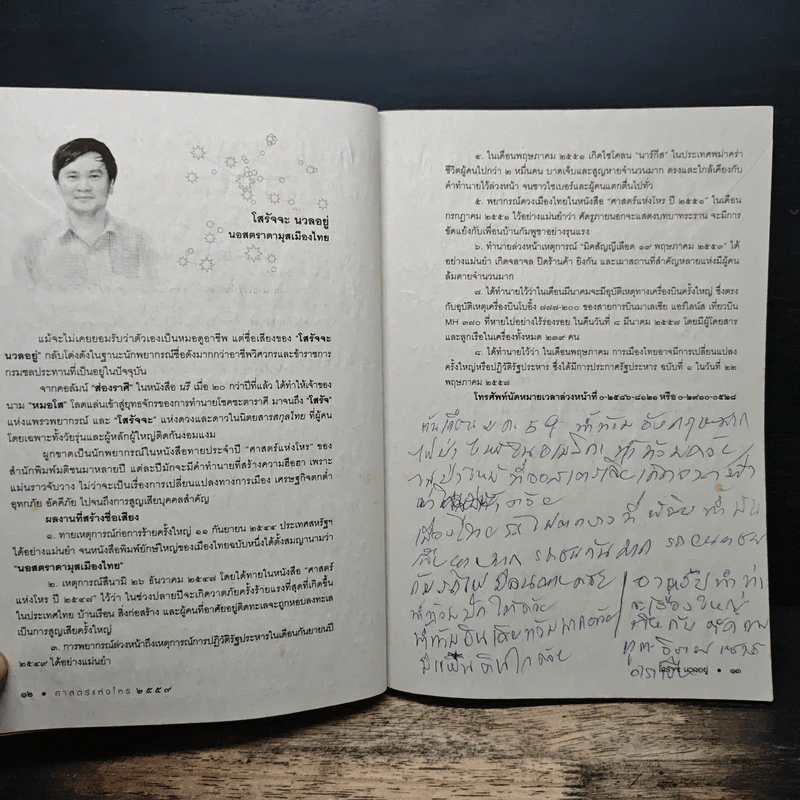 โสรัจจะ นวลอยู่
นอสตราดามุสเมืองไทย
แม้จะไม่เคยยอมรับว่าตัวเองเป็นหมอดูอาชีพ แต่ชื่อเสียงของ "โสรัจจะ
นวลอยู่" กลับโด่งดังในฐานะนักพยากรณ์ชื่อดังมากกว่าอาชีพวิศวกรและข้าราชการ
กรมชลประทานที่เป็นอยู่ในปัจจุบัน
จากคอลัมน์ "ส่องราศี" ในหนังสือ นรี เมื่อ ๒๐ กว่าปีที่แล้ว ได้ทำให้เจ้าของ
นาม "หมอโส" โลดแล่นเข้าสู่ยุทธจักรของการทำนายโชคชะตาราศี มาจนถึง "โสรัจ"
แห่งแพรวพยากรณ์ และ "โสรัจจะ" แห่งดวงและดาวในนิตยสารสกุลไทย ที่ผู้คน
โดยเฉพาะทั้งวัยรุ่นและผู้หลักผู้ใหญ่ติดกันงอมแงม
ผูกขาดเป็นนักพยากรณ์ในหนังสือทายประจำปี "ศาสตร์แห่งโหร" ของ
สำนักพิมพ์มติชนมาหลายปี แต่ละปีมักจะมีคำทำนายที่สร้างความฮือฮา เพราะ
แม่นราวจับวาง ไม่ว่าจะเป็นเรื่องการเปลี่ยนแปลงทางการเมือง เศรษฐกิจตกต่ำ
อุทกภัย อัคคีภัย ไปจนถึงการสูญเสียบุคคลสำคัญ
ผลงานที่สร้างชื่อเสียง
๑. ทายเหตุการณ์ก่อการร้ายครั้งใหญ่ ๑๑ กันยายน ๒๕๔๔ ประเทศสหรัฐฯ
ได้อย่างแม่นยำ จนหนังสือพิมพ์ยักษ์ใหญ่ของเมืองไทยฉบับหนึ่งได้ตั้งสมญานามว่า
"นอสตราดามุสเมืองไทย"
๒. เหตุการณ์สึนามิ ๒๖ ธันวาคม ๒๕๔๗ โดยได้ทายในหนังสือ "ศาสตร์
แห่งโหร ปี ๒๕๔๗" ไว้ว่า ในช่วงปลายปีจะเกิดวาตภัยครั้งร้ายแรงที่สุดที่เกิดขึ้น
ในประเทศไทย บ้านเรือน สิ่งก่อสร้าง และผู้คนที่อาศัยอยู่ติดทะเลจะถูกหอบลงทะเล
เป็นการสูญเสียครั้งใหญ่
๓. การพยากรณ์ล่วงหน้าถึงเหตุการณ์การปฏิวัติรัฐประหารในเดือนกันยายนปี
๒๕๔๙ ได้อย่างแม่นยำ
๑๒ • ศาสตร์แห่งโหร ๒๕๕๙
๔. ในเดือนพฤษภาคม ๒๕๕๑ เกิดไซโคลน "นาร์กีส" ในประเทศพม่าคร่า
ชีวิตผู้คนไปกว่า ๒ หมื่นคน บาดเจ็บและสูญหายจำนวนมาก ตรงและใกล้เคียงกับ
คำทำนายไว้ล่วงหน้า จนชาวไซเบอร์และผู้คนแตกตื่นไปทั่ว
๕. พยากรณ์ดวงเมืองไทยในหนังสือ "ศาสตร์แห่งโหร ปี ๒๕๕๑" ในเดือน
กรกฎาคม ๒๕๕๑ ไว้อย่างแม่นยำว่า ศัตรูภายนอกจะแสดงบทบาททระราน จะมีการ
ขัดแย้งกับเพื่อนบ้านกัมพูชาอย่างรุนแรง
๖. ทำนายล่วงหน้าเหตุการณ์ "มิคสัญญีเลือด ๑๙ พฤษภาคม ๒๕๕๓" ได้
อย่างแม่นยำ เกิดจลาจล ปิดร้านค้า ยิงกัน และเผาสถานที่สำคัญหลายแห่งมีผู้คน
ล้มตายจำนวนมาก
๗. ได้ทำนายไว้ว่าในเดือนมีนาคมจะมีอุบัติเหตุทางเครื่องบินครั้งใหญ่ ซึ่งตรง
กับอุบัติเหตุเครื่องบินโบอิ้ง ๗๗๗-๒๐๐ ของสายการบินมาเลเซีย แอร์ไลน์ส เที่ยวบิน
MH ๓๗๐ ที่หายไปอย่างไร้ร่องรอย ในคืนวันที่ ๘ มีนาคม ๒๕๕๗ โดยมีผู้โดยสาร
และลูกเรือในเครื่องทั้งหมด ๒๓๙ คน
๘. ได้ทำนายไว้ว่า ในเดือนพฤษภาคม การเมืองไทยอาจมีการเปลี่ยนแปลง
ครั้งใหญ่หรือปฏิวัติรัฐประหาร ซึ่งได้มีการประกาศรัฐประหาร ฉบับที่ ๑ ในวันที่ ๒๒
พฤษภาคม ๒๕๕๗
โทรศัพท์นัดหมายเวลาล่วงหน้าที่ ๐-๒๕๔๖-๔๐๒๑ หรือ ๐-๒๙๑๐-๐๕๒๘
59 น้ำท่วม อังกฤษมาก
ไฟป่า น้ำท่วมด้วย
ที่ออสเตรเลีย
ด้วย
เมืองไทย
รถชนกันมาก
น้ำท่วม ด้วย
น้ำท่วมอินเดีย ด้วย
มีแผ่นดินไหวด้วย
โสรัจจะ นวลอยู่ • ๑๓